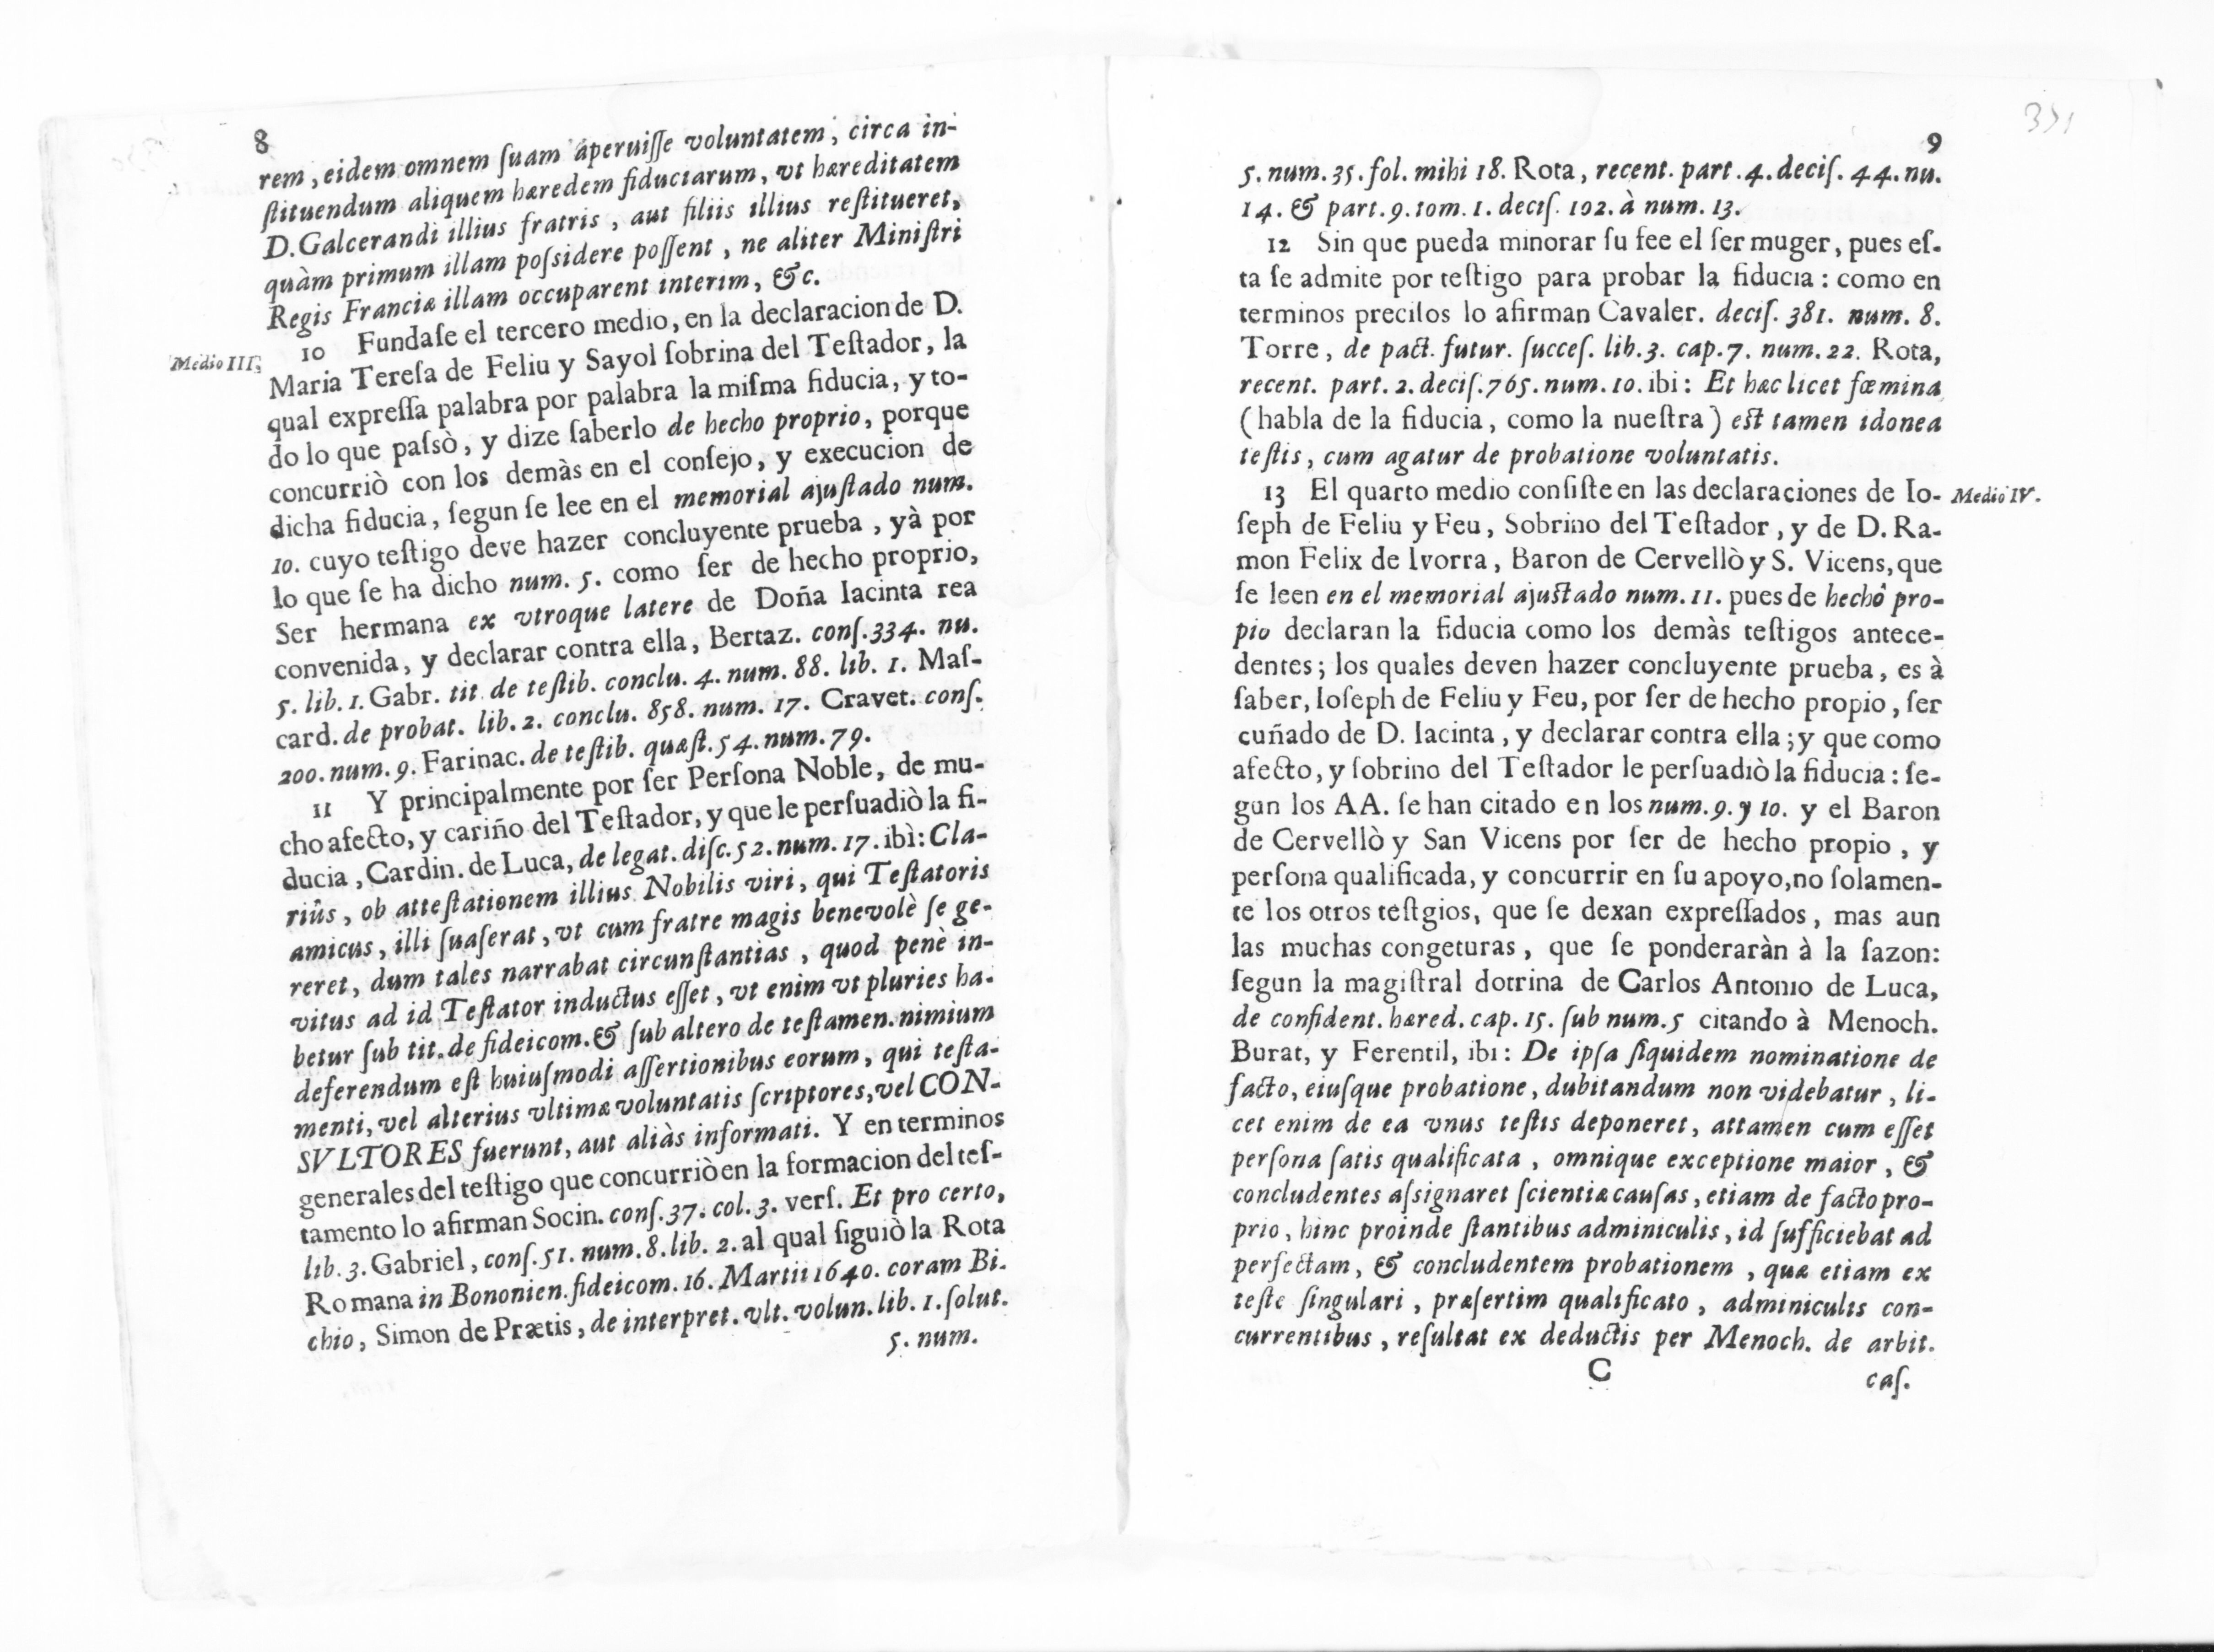 8
rem, eidem omnem ſuam aperuiſſe voluntatem, circa in-
ſtituendum aliquem hæredem fiduciarum, vt hæreditatem
D. Galcerandi illius fratris, aut filiis illius reſtitueret,
quàm primum illam poſsidere poſſent, ne aliter Miniſtri
Regis Franciæ illam occuparent interim, &c.
Medio III.
10 Fundaſe el tercero medio, en la declaracion de D.
Maria Tereſa de Feliu y Sayol ſobrina del Teſtador, la
qual expreſſa palabra por palabra la miſma fiducia, y to-
do lo que paſsò, y dize ſaberlo de hecho proprio, porque
concurriò con los demàs en el conſejo, y execucion de
dicha fiducia, ſegun ſe lee en el memorial ajuſtado num.
10. cuyo teſtigo deve hazer concluyente prueba, yà por
lo que ſe ha dicho num. 5. como ſer de hecho proprio,
Ser hermana ex vtroque latere de Doña Iacinta rea
convenida, y declarar contra ella, Bertaz. conſ. 334. nu.
5. lib. 1. Gabr. tit de teſtib. conclu. 4. num. 88. lib. 1. Maſ-
card. de probat. lib. 2. conclu. 858. num. 17. Cravet. conſ.
200. num. 9. Farinac. de teſtib. quæſt. 54. num. 79.
11 Y principalmente por ſer Perſona Noble, de mu-
cho afecto, y cariño del Teſtador, y que le perſuadiò la fi-
ducia, Cardin. de Luca, de legat. diſc. 52. num. 17. ibì: Cla-
riûs, ob atteſtationem illius Nobilis viri, qui Teſtatoris
amicus, illi ſuaſerat, vt cum fratre magis benevolè ſe ge-
reret, dum tales narrabat circunſtantias, quod penè in-
vitus ad id Teſtator inductus eſſet, vt enim vt pluries ha-
betur ſub tit. de fideicom. & ſub altero de teſtamen. nimium
deferendum eſt huiuſmodi aſſertionibus eorum, qui teſta-
menti, vel alterius vltimæ voluntatis ſcriptores, vel CON-
SVLTORES fuerunt, aut aliàs informati. Y en terminos
generales del teſtigo que concurriò en la formacion del teſ-
tamento lo afirman Socin. conſ. 37. col. 3. verſ. Et pro certo,
lib. 3. Gabriel, conſ. 51. num. 8. lib. 2. al qual ſiguiò la Rota
Romana in Bononien. fideicom. 16. Martii 1640. coram Bi-
chio, Simon de Prætis, de interpret. vlt. volun. lib. 1. ſolut.
5. num.
351
9
5. num. 35. fol. mihi 18. Rota, recent. part. 4. deciſ. 44. nu.
14. & part. 9. tom. 1. deciſ. 102. à num. 13.
12 Sin que pueda minorar ſu fee el ſer muger, pues eſ-
ta ſe admite por teſtigo para probar la fiducia: como en
terminos preciſos lo afirman Cavaler. deciſ. 381. num. 8.
Torre, de pact. futur. ſucceſ. lib. 3. cap. 7. num. 22. Rota,
recent. part. 2. deciſ. 765. num. 10. ibi: Et hæc licet fœmina
(habla de la fiducia, como la nueſtra) eſt tamen idonea
teſtis, cum agatur de probatione voluntatis.
13 El quarto medio conſiſte en las declaraciones de Io-
Medio IV.
ſeph de Feliu y Feu, Sobrino del Teſtador, y de D. Ra-
mon Felix de Ivorra, Baron de Cervellò y S. Vicens, que
ſe leen en el memorial ajuſtado num. 11. pues de hecho pro-
pio declaran la fiducia como los demàs teſtigos antece-
dentes; los quales deven hazer concluyente prueba, es à
ſaber, Ioſeph de Feliu y Feu, por ſer de hecho propio, ſer
cuñado de D. Iacinta, y declarar contra ella; y que como
afecto, y ſobrino del Teſtador le perſuadiò la fiducia: ſe-
gun los AA. ſe han citado en los num. 9. y 10. y el Baron
de Cervellò y San Vicens por ſer de hecho propio, y
perſona qualificada, y concurrir en ſu apoyo, no ſolamen-
te los otros teſtgios, que ſe dexan expreſſados, mas aun
las muchas congeturas, que ſe ponderaràn à la ſazon:
ſegun la magiſtral dotrina de Carlos Antonio de Luca,
de confident. hæred. cap. 15. ſub num. 5 citando à Menoch.
Burat, y Ferentil, ibi: De ipſa ſiquidem nominatione de
facto, eiuſque probatione, dubitandum non videbatur, li-
cet enim de ea vnus teſtis deponeret, attamen cum eſſet
perſona ſatis qualificata, omnique exceptione maior, &
concludentes aſsignaret ſcientiæ cauſas, etiam de facto pro-
prio, hinc proinde ſtantibus adminiculis, id ſufficiebat ad
perfectam, & concludentem probationem, quæ etiam ex
teſte ſingulari, præſertim qualificato, adminiculis con-
currentibus, reſultat ex deductis per Menoch. de arbit.
C
caſ.